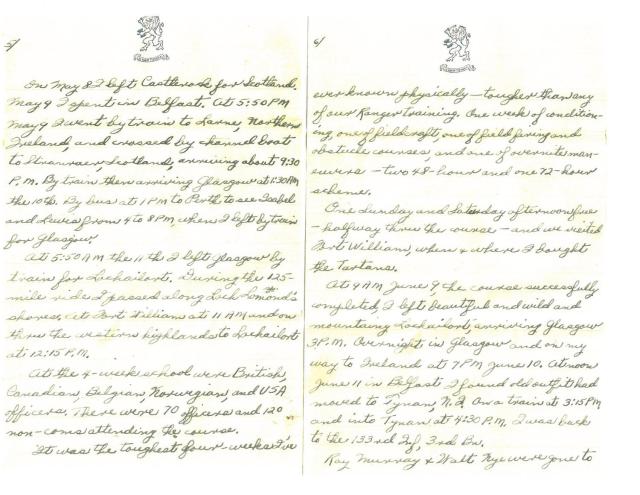 5/
On May 8 I left Castlerock for Scotland.
May 9 I spent in Belfast. At 5:50 PM
May 9 I went by train to Larne, Northern
Ireland, and crossed by channel boat
to Stranraer, Scotland, arriving about 9:30
P.M. By train then arriving Glasgow at 1:30 AM
the 10th. By bus at 1 PM to Perth, to see Isabel
and Lewis from 4 to 8 PM, when I left by train
for Glasgow.
At 5:50 AM the 11th I left Glasgow by
train for Lochailort. During the 125-
mile ride I passed along Loch Lomond's
shores, at Fort William at 11 AM and on
thru the western highlands to Lochailort
at 12:15 P.M.
At the 4-week school were British,
Canadian, Belgian, Norwegian and USA
officers. There were 70 officers and 120
non-coms attending the course.
It was the toughest four-weeks I've
6/
ever known physically — tougher than any
of our Ranger training. One week of condition-
ing, one of fieldcraft, one of field firing and
obstacle courses, and one of overnite man-
euvers — two 48-hour and one 72-hour
scheme.
One Sunday and Saturday afternoon free
- halfway thru the course — and we visited
Fort William, when & where I bought
the Tartans.
At 9 AM June 9 the course successfully
completed, I left beautiful and wild and
mountainy Lochailort, arriving Glasgow
3 P.M. Overnight in Glasgow and on my
way to Ireland at 7 PM June 10. At noon
June 11 in Belfast I found old outfit had
moved to Tynan, N.I. On a train at 3:15 PM
and into Tynan at 4:30 P.M. I was back
to the 133rd Inf, 3rd Bn.
Ray Murray & Walt Nye were gone to